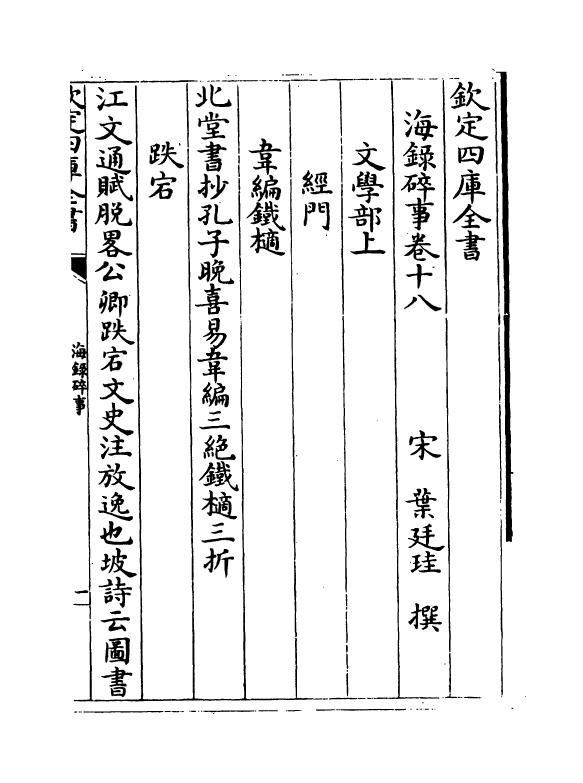 欽定四庫全書
海錄碎事卷十八　宋　葉廷珪　撰
文學部上
經門
韋編鐵擿
北堂書抄孔子晚喜易韋編三絶鐵擿三折
跌宕
江文通賦脱畧公卿跌宕文史注放逸也坡詩云圖書
欽定四庫全書
海錄碎事
二